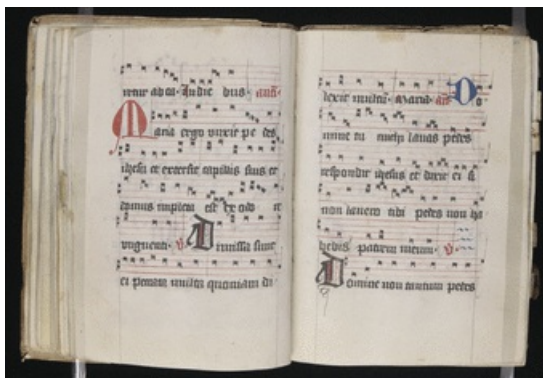 untur ab ea. In die bus. añ.
Maria ergo unxit pe des
ihesu et extersit capillis suis et
domus impleta est ex odo re
unguenti. v̄. Dimissa sunt
ei peccata multa quoniam di
lexit multum. Maria. añ. Do
mine tu michi lavas pedes
respondit ihesus et dixit ei si
non lavero tibi pedes non ha
bebis partem mecum. v̄.
Domine non tantum pedes